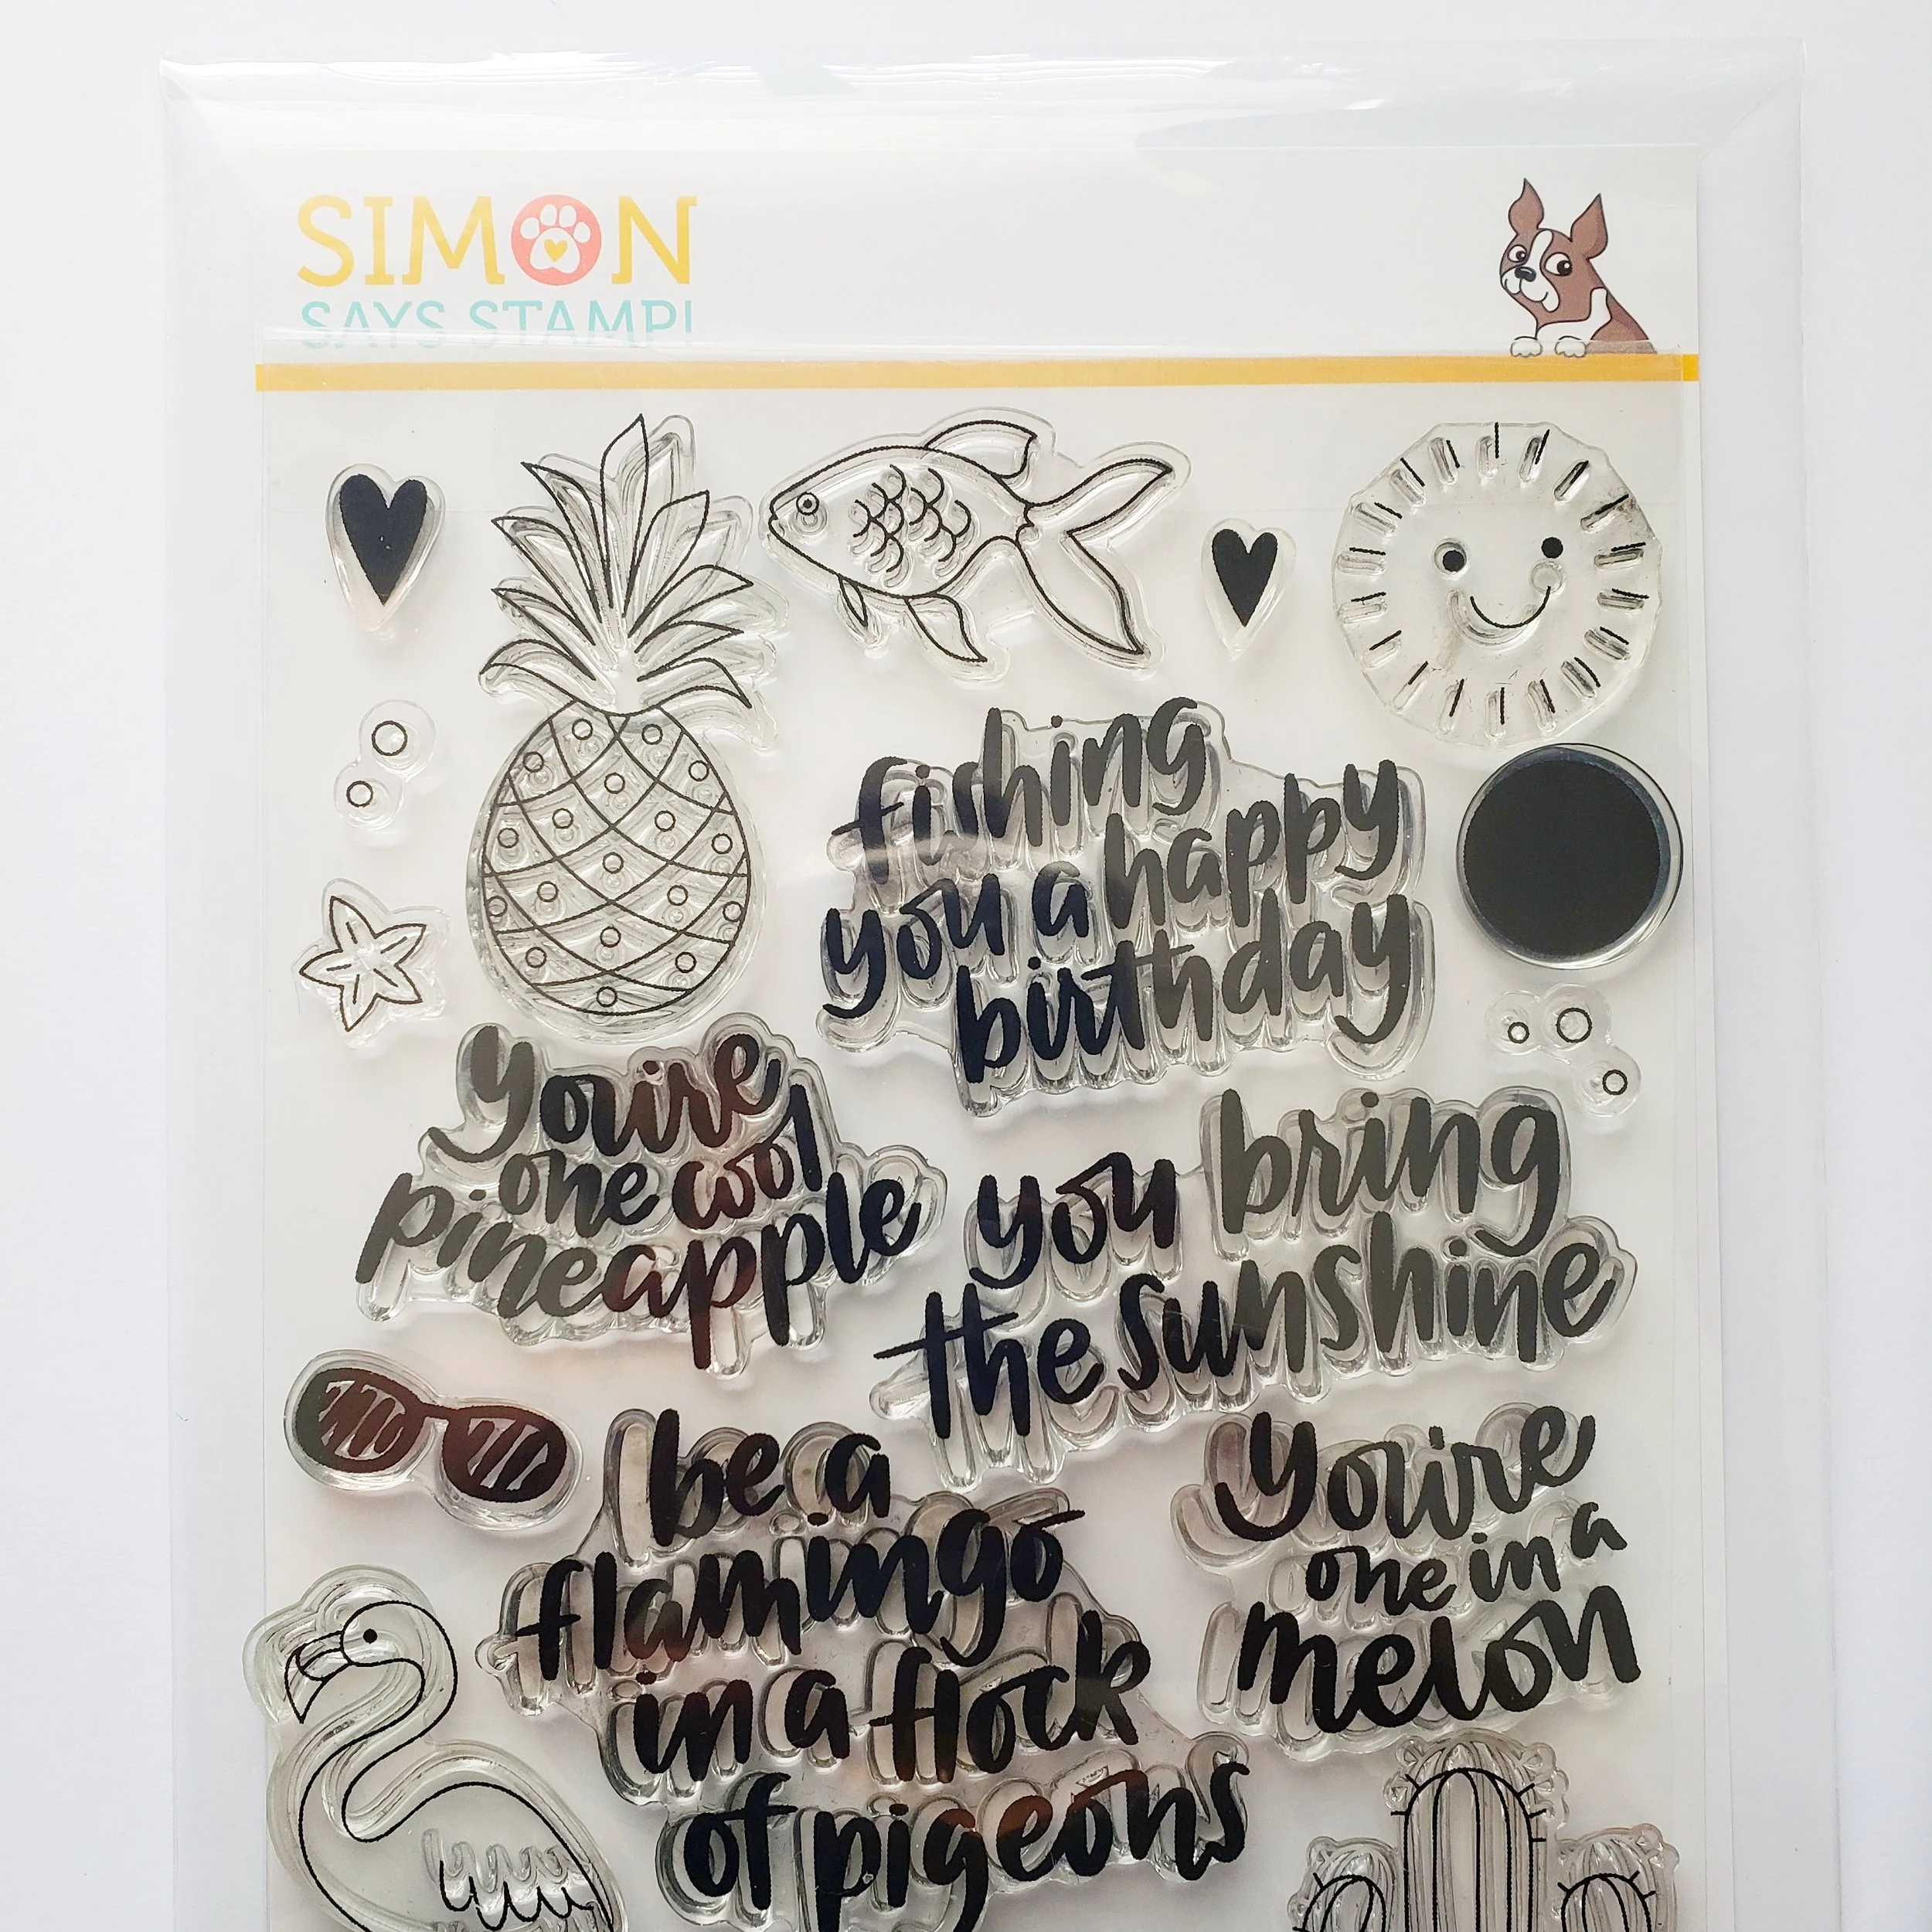 SIMON
SAYS STAMP!
fishing
you a happy
birthday
you're
one cool
pineapple
you bring
the sunshine
be a
flamingo
in a flock
of pigeons
you're
one in a
melon